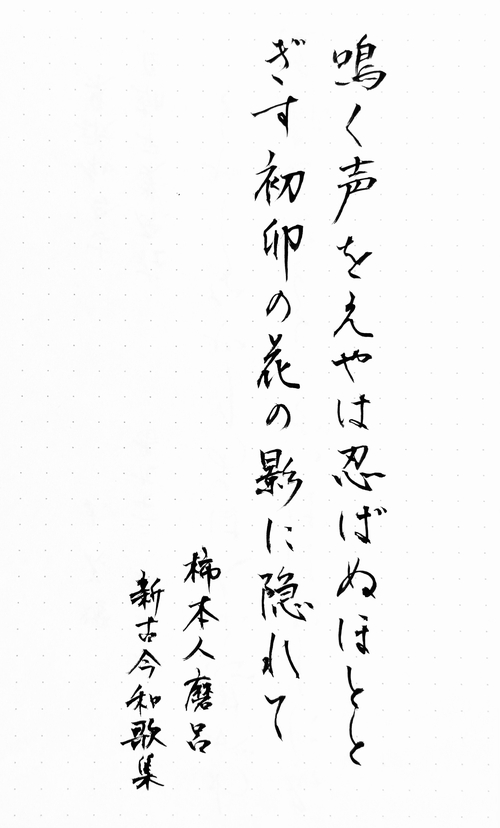 鳴く声をえやは忍ばぬほとと
ぎす初卯の花の影に隠れて
柿本人磨呂
新古今和歌集